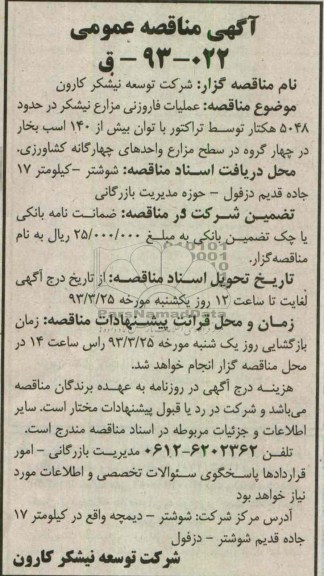 آگهی مناقصه عمومی
۹۳-۰۲۲ - ق
نام مناقصه گزار: شرکت توسعه نیشکر کارون
موضوع مناقصه: عملیات فاروزنی مزارع نیشکر در حدود
۵۰۴۸ هکتار توسط تراکتور با توان بیش از ۱۴۰ اسب بخار
در چهار گروه در سطح مزارع واحدهای چهارگانه کشاورزی.
محل دریافت اسناد مناقصه: شوشتر -کیلومتر ۱۷
جاده قدیم دزفول - حوزه مدیریت بازرگانی
تضمین شرکت در مناقصه: ضمانت نامه بانکی
یا چک تضمین بانکی به مبلغ ۲۵/۰۰۰/۰۰۰ ریال به نام
مناقصه‌گزار.
تاریخ تحویل اسناد مناقصه: از تاریخ درج آگهی
لغایت تا ساعت ۱۲ روز یکشنبه مورخه ۹۳/۳/۲۵
زمان و محل قرائت پیشنهادات مناقصه: زمان
بازگشایی روز یک شنبه مورخه ۹۳/۳/۲۵ راس ساعت ۱۴ در
محل مناقصه گزار انجام خواهد شد.
هزینه درج آگهی در روزنامه به عهده برندگان مناقصه
می‌باشد و شرکت در رد یا قبول پیشنهادات مختار است. سایر
اطلاعات و جزئیات مربوطه در اسناد مناقصه مندرج است.
تلفن ۶۲۰۲۳۶۲-۰۶۱۲ مدیریت بازرگانی - امور
قراردادها پاسخگوی سئوالات تخصصی و اطلاعات مورد
نیاز خواهد بود
آدرس مرکز شرکت: شوشتر - دیمچه واقع در کیلومتر ۱۷
جاده قدیم شوشتر - دزفول
شرکت توسعه نیشکر کارون